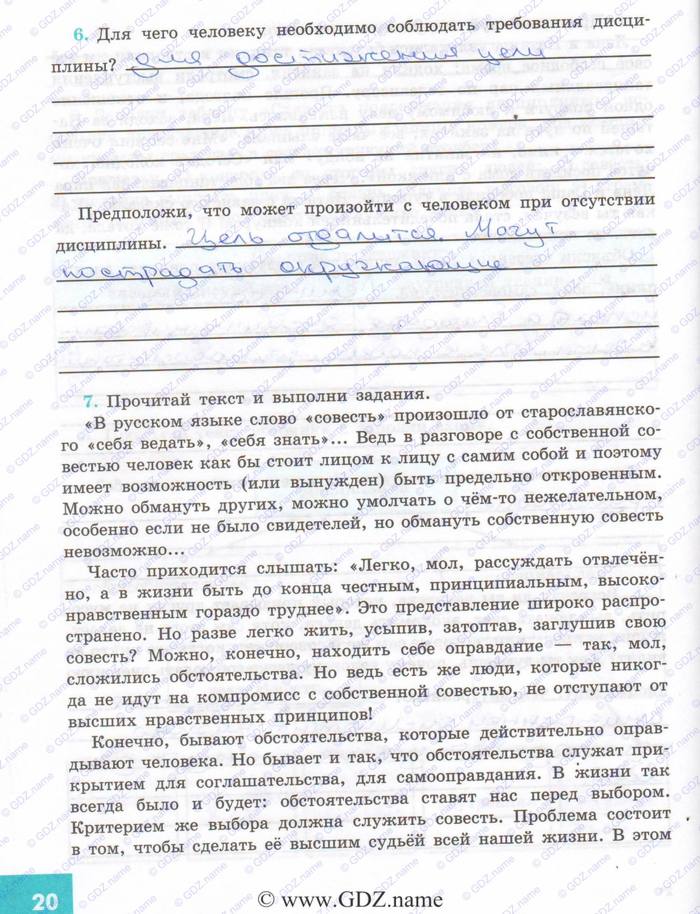 6. Для чего человеку необходимо соблюдать требования дисци-
плины? для достижения цели
Предположи, что может произойти с человеком при отсутствии
дисциплины. Цель отдалится. Могут
пострадать окружающие
7. Прочитай текст и выполни задания.
«В русском языке слово «совесть» произошло от старославянско-
го «себя ведать», «себя знать»... Ведь в разговоре с собственной со-
вестью человек как бы стоит лицом к лицу с самим собой и поэтому
имеет возможность (или вынужден) быть предельно откровенным.
Можно обмануть других, можно умолчать о чём-то нежелательном,
особенно если не было свидетелей, но обмануть собственную совесть
невозможно...
Часто приходится слышать: «Легко, мол, рассуждать отвлечён-
но, а в жизни быть до конца честным, принципиальным, высоко-
нравственным гораздо труднее». Это представление широко распро-
странено. Но разве легко жить, усыпив, затоптав, заглушив свою
совесть? Можно, конечно, находить себе оправдание — так, мол,
сложились обстоятельства. Но ведь есть же люди, которые никог-
да не идут на компромисс с собственной совестью, не отступают от
высших нравственных принципов!
Конечно, бывают обстоятельства, которые действительно оправ-
дывают человека. Но бывает и так, что обстоятельства служат при-
крытием для соглашательства, для самооправдания. В жизни так
всегда было и будет: обстоятельства ставят нас перед выбором.
Критерием же выбора должна служить совесть. Проблема состоит
в том, чтобы сделать её высшим судьёй всей нашей жизни. В этом
20
© www.GDZ.name